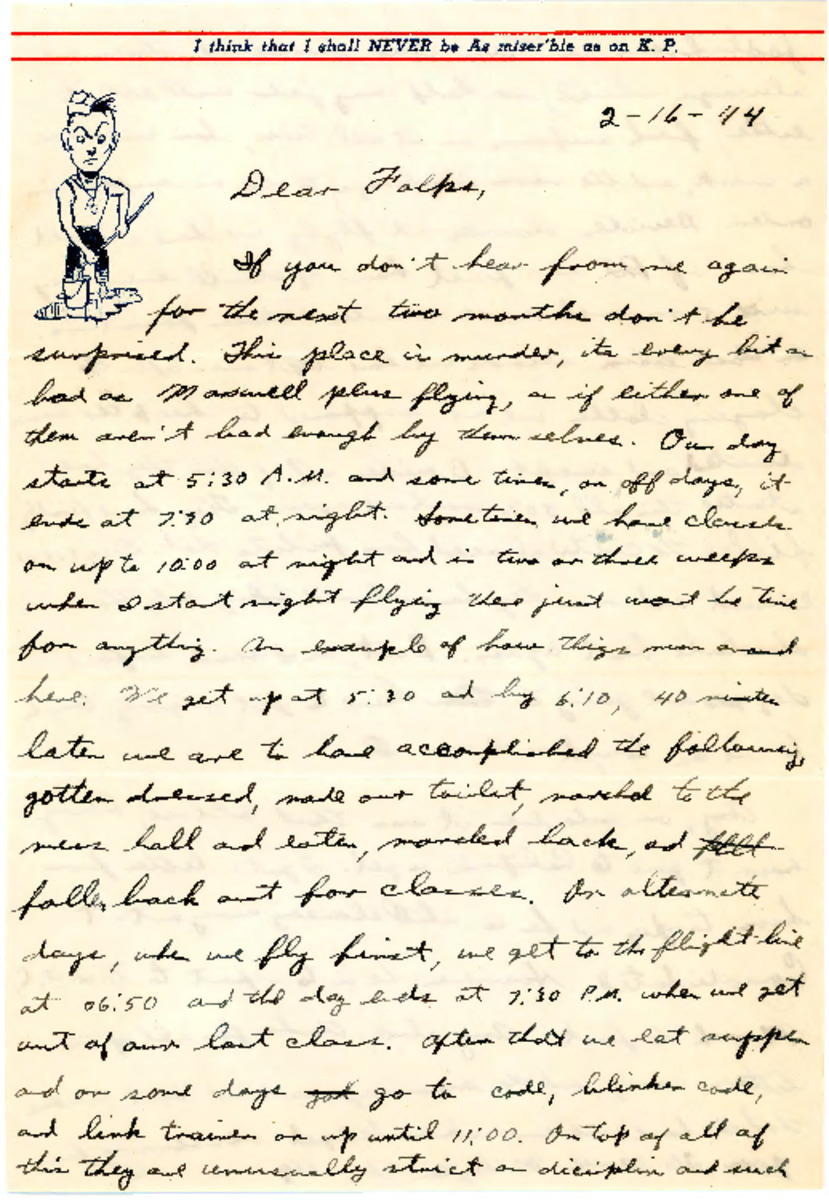 I think that I shall NEVER be As miser'ble as on K. P.
2-16-44
Dear Folks,
If you don't hear from me again
for the next two months don't be
surprised. This place is murder, its every bit as
bad as Maxwell plus flying, as if either one of
them aren't bad enough by themselves. Our day
starts at 5:30 A.M. and some times, on off days, it
ends at 7:30 at night. Sometimes we have classes
on up to 10:00 at night and in two or three weeks
when I start night flying there just wont be time
for anything. An example of how things run around
here. We get up at 5:30 ad by 6:10, 40 minutes
later we are to have accomplished the following,
gotten dressed, made our toilet, marched to the
mess hall and eaten, marched back, ad
fallen back out for classes. On alternate
days, when we fly first, we get to the flight line
at 06:50 and the day ends at 7:30 P.M. when we get
out of our last class. After that we eat supper
and on some days go to code, blinker code,
and link trainer on up until 11:00. On top of all of
this they are unusually strict on disciplin and such